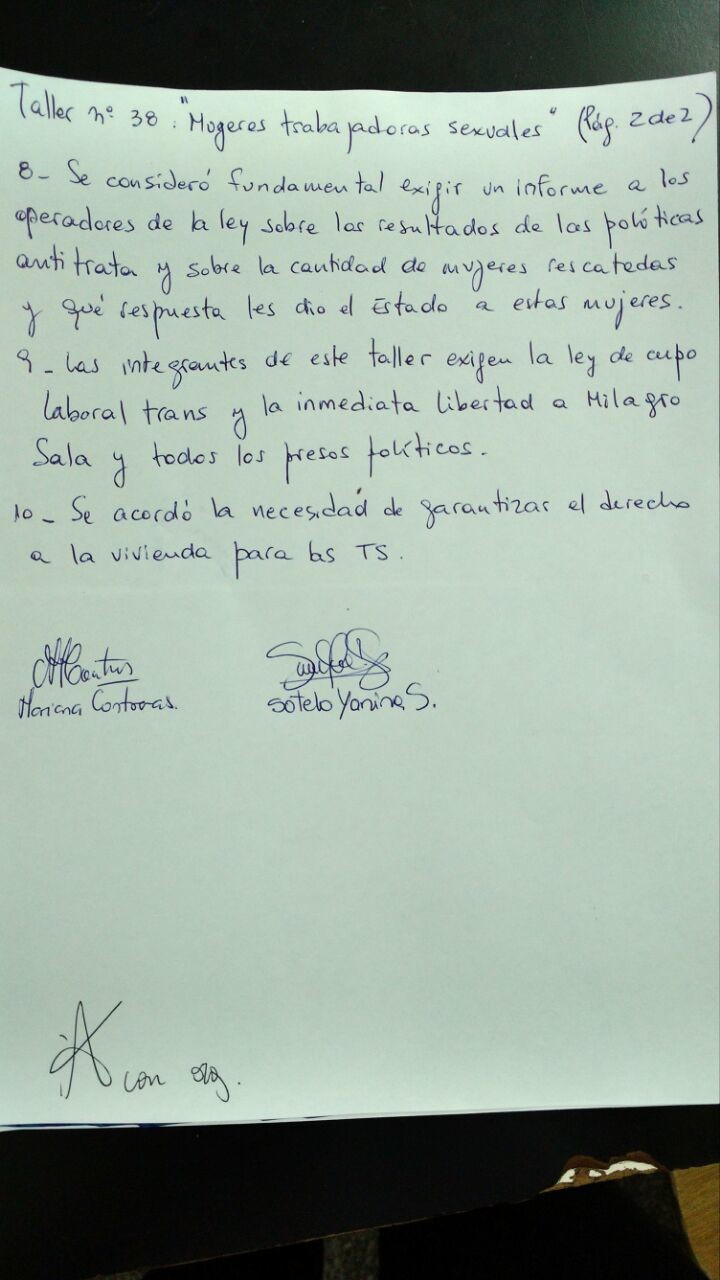 Taller nº 38: "Mugeres trabajadoras sexuales" (Pág. 2 de 2)
8- Se consideró fundamental exigir un informe a los
operadores de la ley sobre los resultados de las políticas
antitrata y sobre la cantidad de mujeres rescatadas
y qué respuesta les dio el Estado a estas mujeres.
9- Las integrantes de este taller exigen la ley de cupo
laboral trans y la inmediata libertad a Milagro
Sala y todos los presos políticos.
10- Se acordó la necesidad de garantizar el derecho
a la vivienda para las TS.
Mariana Contreras. Sotelo Yanina S.
con org.